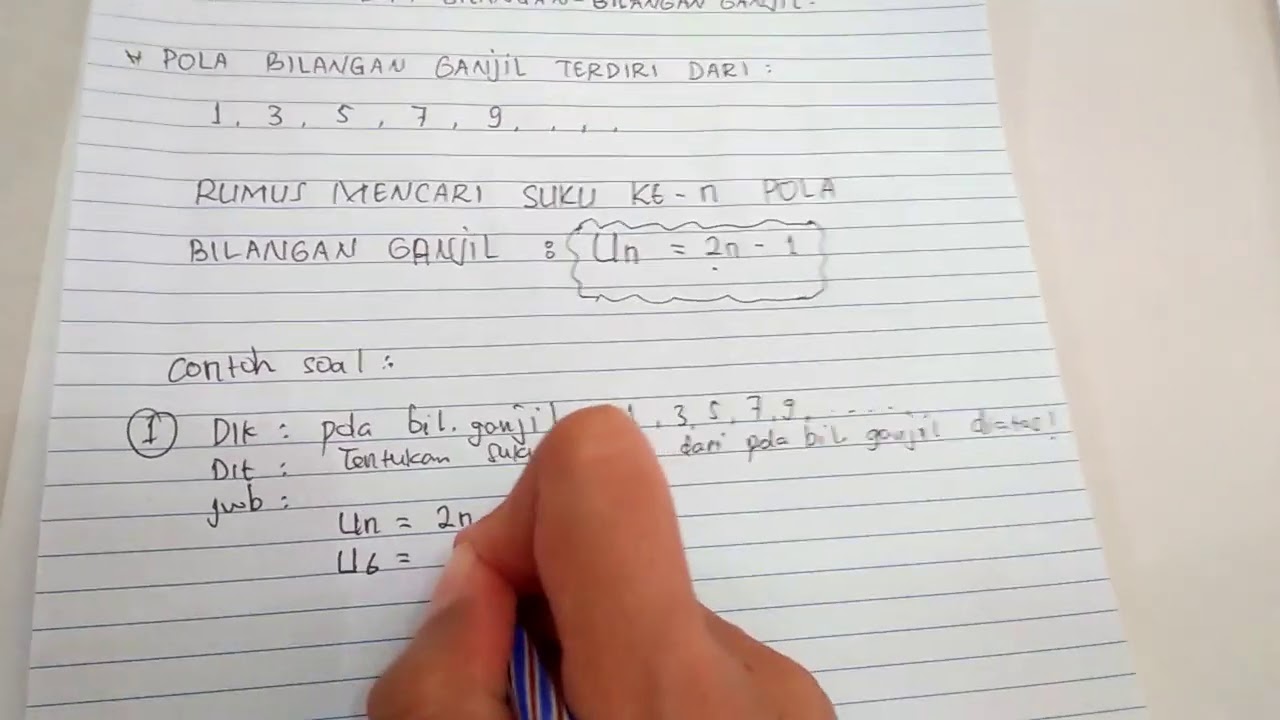 BILANGAN-BILANGAN GANJIL.
* POLA BILANGAN GANJIL TERDIRI DARI :
1, 3, 5, 7, 9, . , , .
RUMUS MENCARI SUKU KE-n POLA
BILANGAN GANJIL : Un = 2n - 1
Contoh soal :
1 Dik : pola bil. ganjil , 3, 5, 7, 9, ......
Dit : Tentukan dari pola bil ganjil diatas!
Jwb :
Un = 2n
U6 =